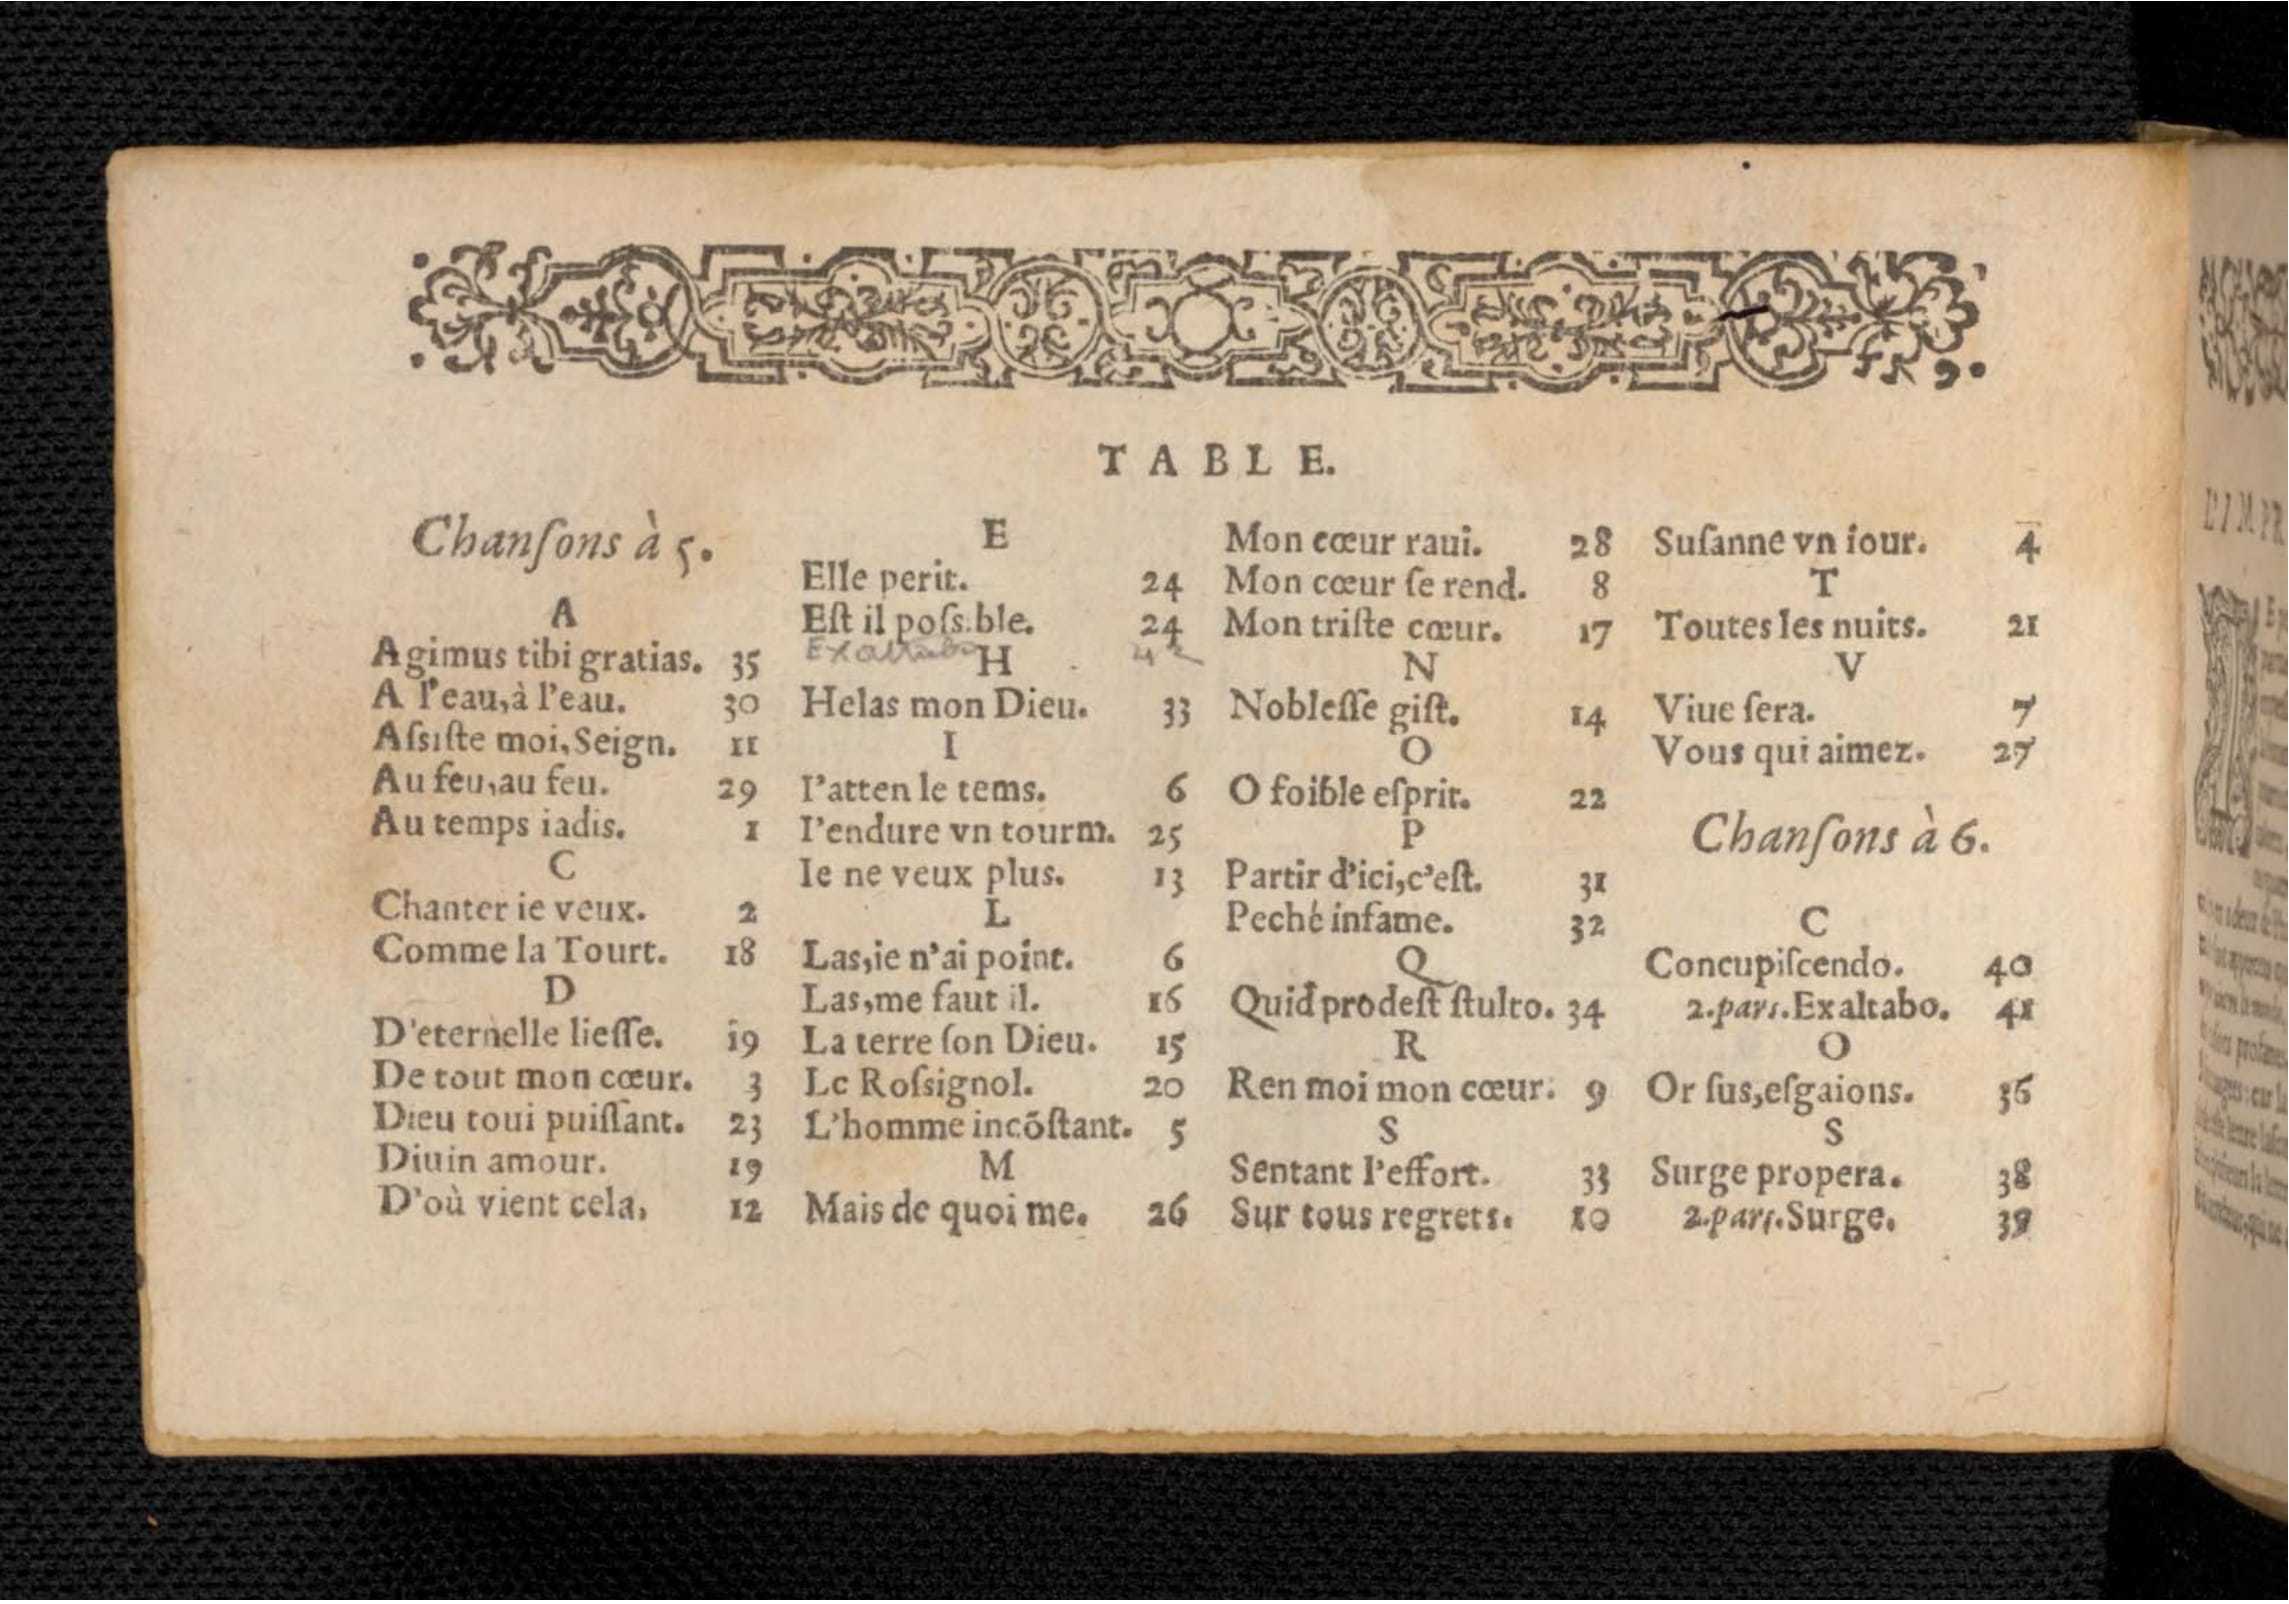 TABLE.
Chanſons à 5.
A
Agimus tibi gratias. 35
A l'eau,à l'eau. 30
Aſsiſte moi,Seign. 11
Au feu,au feu. 29
Au temps iadis. 1
C
Chanter ie veux. 2
Comme la Tourt. 18
D
D'eternelle lieſſe. 19
De tout mon cœur. 3
Dieu toui puiſſant. 23
Diuin amour. 19
D'où vient cela, 12
E
Elle perit. 24
Eſt il poſs.ble. 24
Exaltabo 42
H
Helas mon Dieu. 33
I
I'atten le tems. 6
I'endure vn tourm. 25
Ie ne veux plus. 13
L
Las,ie n'ai point. 6
Las,me faut il. 16
La terre ſon Dieu. 15
Le Roſsignol. 20
L'homme incõſtant. 5
M
Mais de quoi me. 26
Mon cœur raui. 28
Mon cœur ſe rend. 8
Mon triſte cœur. 17
N
Nobleſſe giſt. 14
O
O foible eſprit. 22
P
Partir d'ici,c'eſt. 31
Peché infame. 32
Q
Quid prodeſt ſtulto. 34
R
Ren moi mon cœur. 9
S
Sentant l'effort. 33
Sur tous regrets. 10
Suſanne vn iour. 4
T
Toutes les nuits. 21
V
Viue ſera. 7
Vous qui aimez. 27
Chanſons à 6.
C
Concupiſcendo. 40
2.pars.Exaltabo. 41
O
Or ſus,eſgaions. 36
S
Surge propera. 38
2.pars.Surge. 39